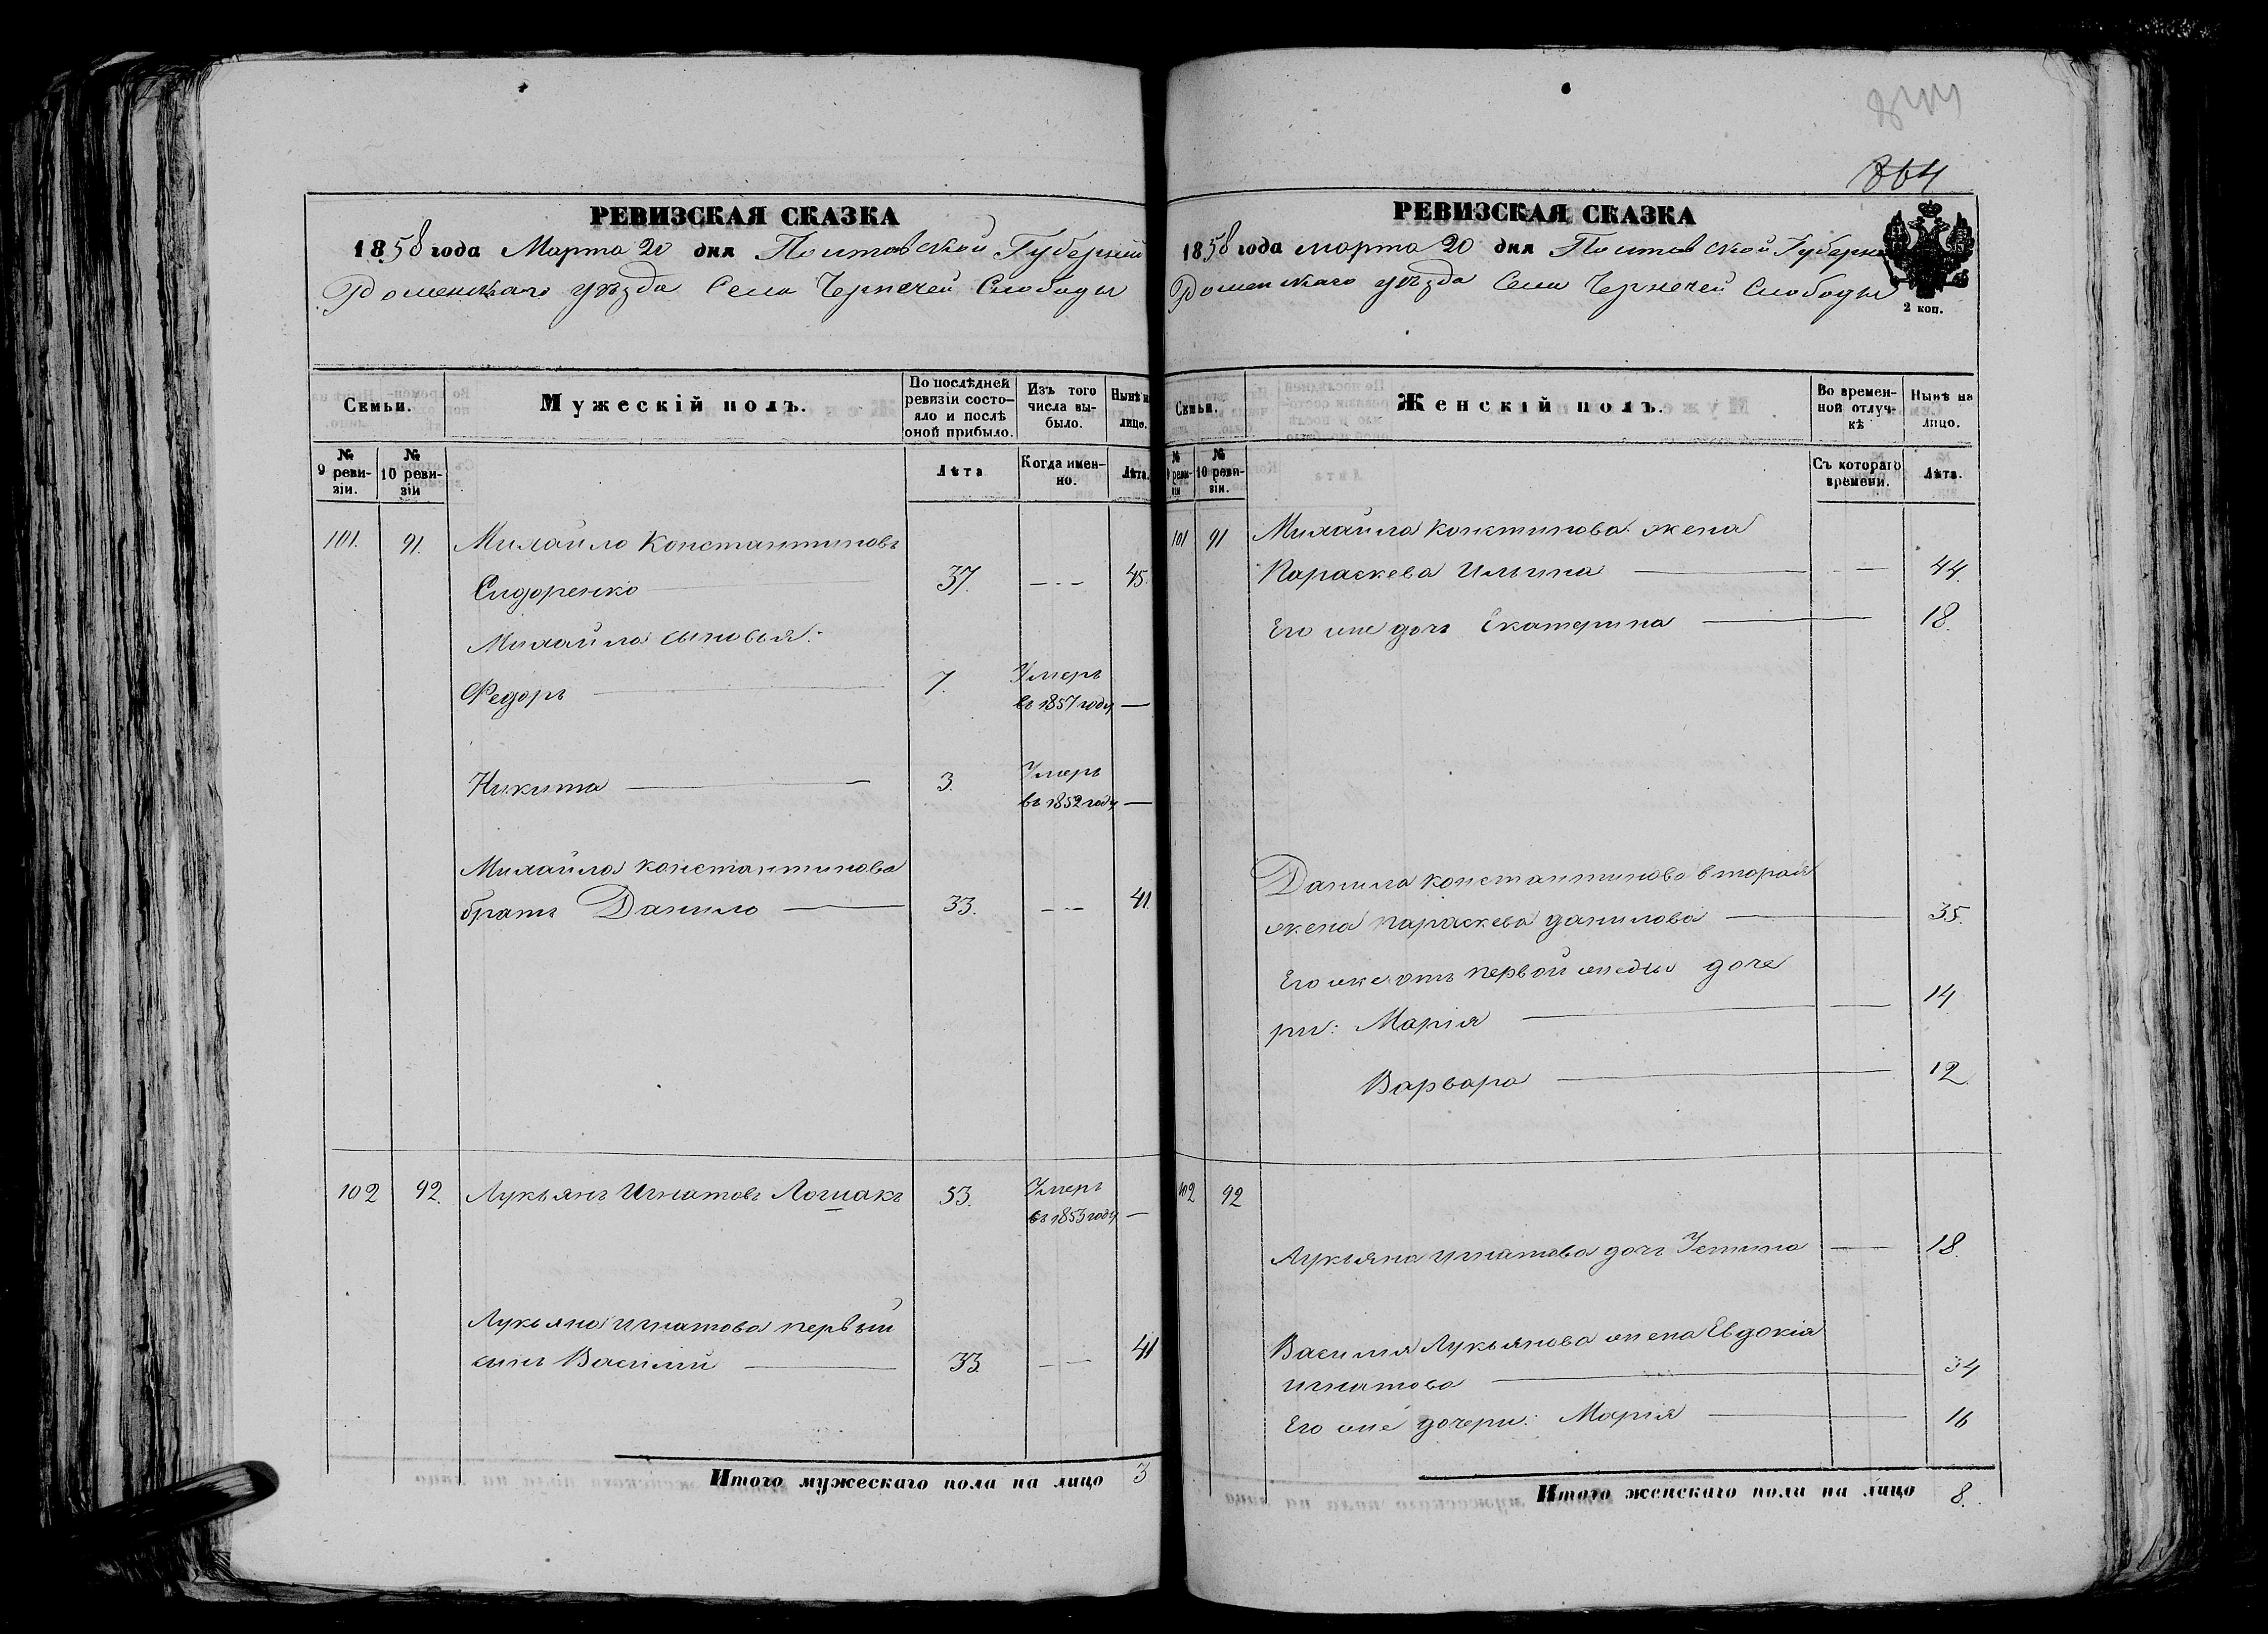 РЕВИЗСКАЯ СКАЗКА
1858 года Марта 20 дня Полтавской Губерніи
Роменскаго уѣзда Села Чернечей Слободы
Семьи.
Мужескій полъ.
По послѣдней ревизіи состояло и послѣ оной прибыло.
Изъ того числа выбыло.
Нынѣ на лицо.
№ 9 ревизіи.
№ 10 ревизіи
Лѣта
Когда именно.
Лѣта.
101. 91. Михайло Константиновъ
Сидоренко 37. 45.
Михайла сыновья:
Федоръ 7. Умеръ въ 1857 году —
Никита — 3. Умеръ въ 1852 году —
Михайла Константинова
братъ Данило — 33. 41.
102 92. Лукьянъ Игнатовъ Лошакъ 53. Умеръ въ 1853 году —
Лукьяна Игнатова первый
сынъ Василий — 33. 41
Итого мужескаго пола на лицо 3
864
РЕВИЗСКАЯ СКАЗКА
1858 года марта 20 дня Полтавской Губерни
Роменскаго уѣзда Села Чернечей Слободы
2 коп.
Семьи.
Женскій полъ.
Во временной отлучкѣ
Нынѣ на лицо.
№ 9 ревизіи
№ 10 ревизіи.
Съ котораго времени.
Лѣта.
101 91 Михайла Констинова жена
Параскева Ильина — 44.
Его же дочь Екатерина — 18.
Данила Константинова вторая
жена Параскева Данилова — 35.
Его же отъ первой жены доче
ри: Марія — 14
Варвара — 12.
102 92
Лукьяна Игнатова дочь Устина — 18.
Василія Лукьянова жена Евдокія
Игнатова — 34
Его же дочери: Марія — 16
Итого женскаго пола на лицо 8.